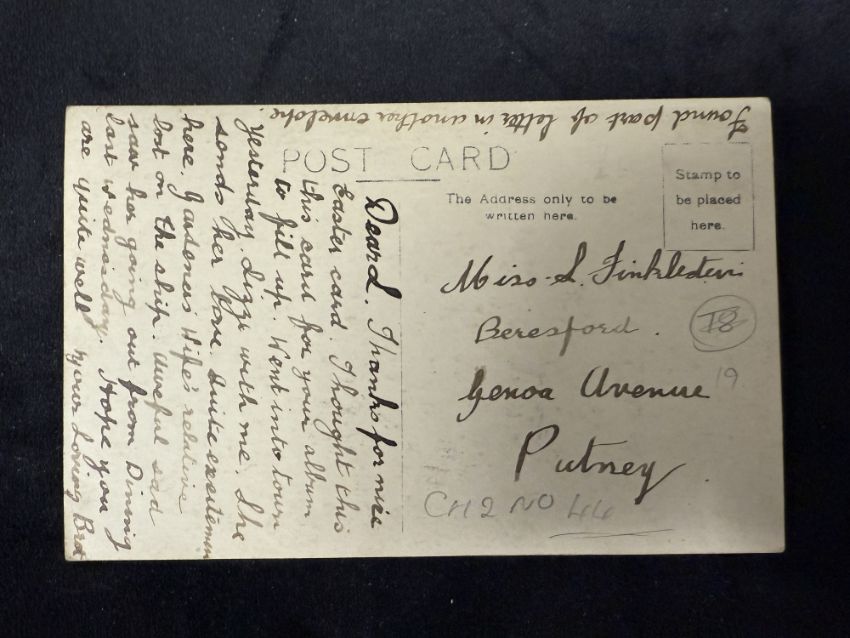 Found part of letter in another envelope.
POST CARD
The Address only to be
written here.
Stamp to
be placed
here.
Dear L. Thanks for nice
Easter card. Thought this
this card for your album
to fill up. Went into town
yesterday. Lizzi with me. She
sends her love. Quite excitemen
here. Gardeners Wife's relative
lost on the ship. Aweful sad
saw her going out from Dinning
last Wednesday. Hope you
are quite well your Loving Bro
Miss L. Finkledein
Beresford.
Genoa Avenue
Putney
I8
19
CH2 NO 44